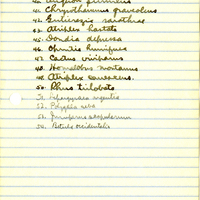 41. Chrysothamnus graveolens
42. Gutierrezia sarothrae
43. Atriplex hastata
45. Dondia depressa
46. Opuntia
47. Cactus viviparus
48. Homalobus montanus
49. Atriplex canescens.
50. Rhus trilobata
51. argentea
52. Polygala alba
53. Juniperus scopulorum
54. Betula occidentalis